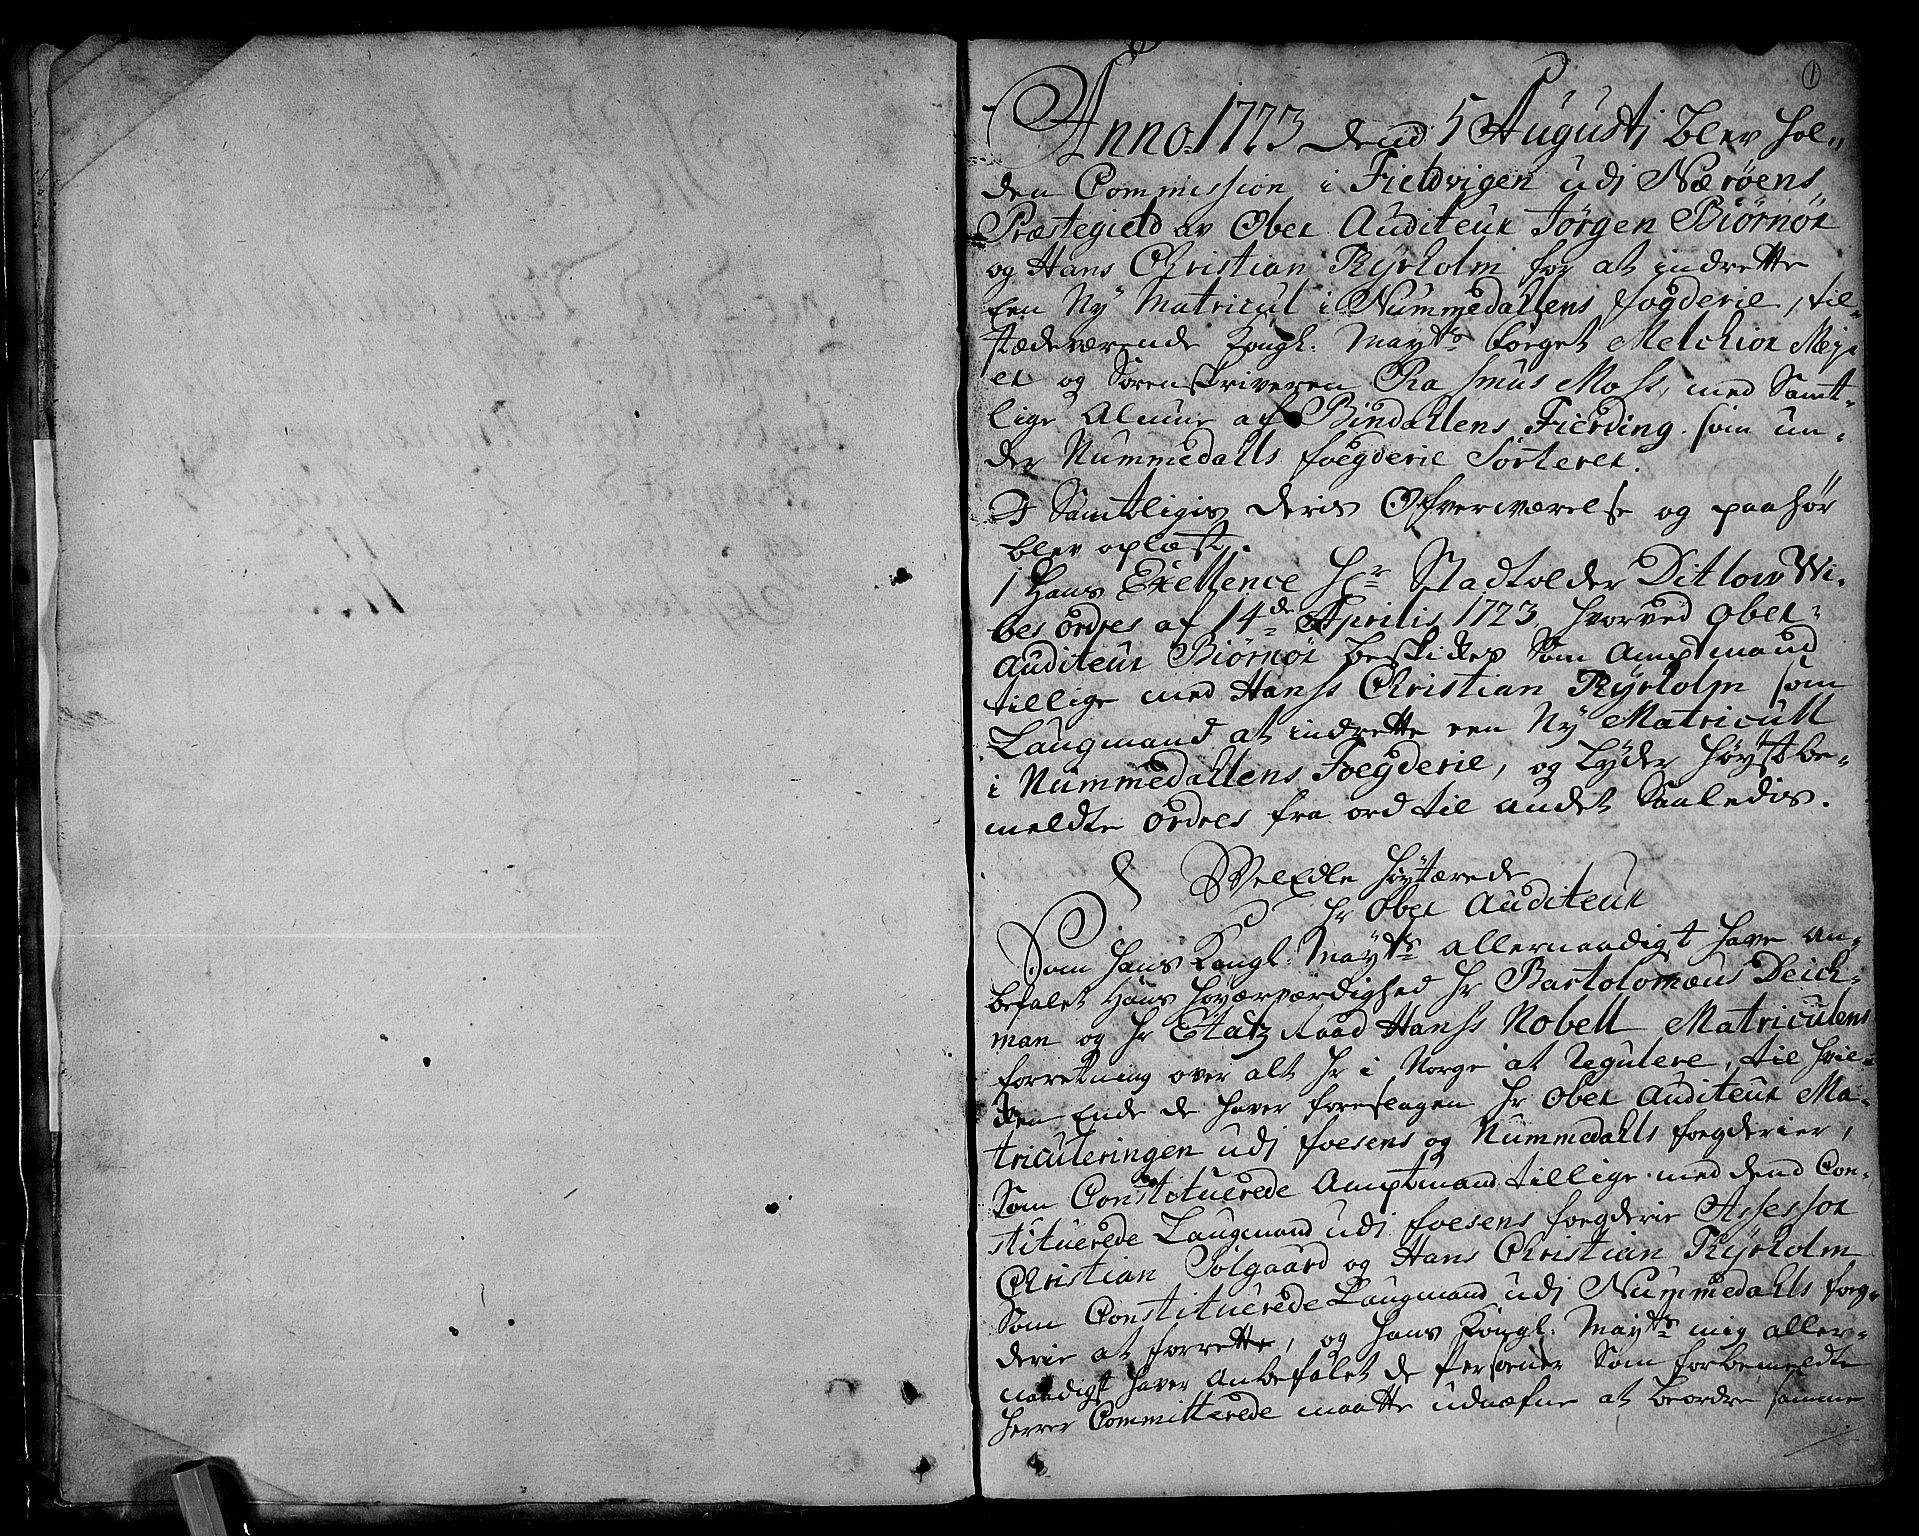 1
Anno 1723 dend 5 Augusti blev hol-
den Commission i Fieldvigen udj Nærøens
Præstegield av Ober Auditeur Jørgen Biørnør
og Hans Christian Kyrholm for at indrette
Een Ny Matricul i Nummedahlens fogderie, til-
stædeværende Kongl: Mayts: foeget Melchior Mej-
er og Sorenskriveren Rasmus Moss, med Samt-
lige Almue af Bindahlens Fierding som un-
der Nummedahls foegderie Sorterer.
I Samtligis deris Ofverværelse og paahør
blev oplæst,
1 Hans Exellence Hr Stadtolder Ditlow Wi-
bes ordres af 14de Aprilis 1723, hvorved ober-
auditeur Biørnør beskikes som Amptmand
tillige med Hanss Christian Kyrholm som
Laugmand at indrette een Ny Matricull
i Nummedahlens Foegderie, og lyder høystbe-
meldte ordres fra ord til andet Saaledis.
WelEdle høytærede
Hr Ober Auditeur
Som Hans Kongl: Mayts allernaadigst have an-
befalet Hans høyærværdighed Hr Bartolomæus Deich-
man og Hr Etatz Raad Hanss Nobell Matriculens
forretning over alt her i Norge at Regulere, til hvil-
ken Ende de haver foreslagen Hr Ober Auditeur Ma-
triculeringen udj foesens og Nummedahls foegderier,
Som Constituerede Amptmand tillige med dend Con-
stituerede Laugmand udj foesens foegderie Assessor
Christian Solgaard og Hans Christian Kyrholm
Som Constituerede Laugmand udj Nummedahls foeg-
derie at forrette, og Hans Kongl: Mayts mig aller-
naadigst haver anbefalet de Persoener Som forbemeldte
Herrer Committerede maatte udnæfne at beordre samme